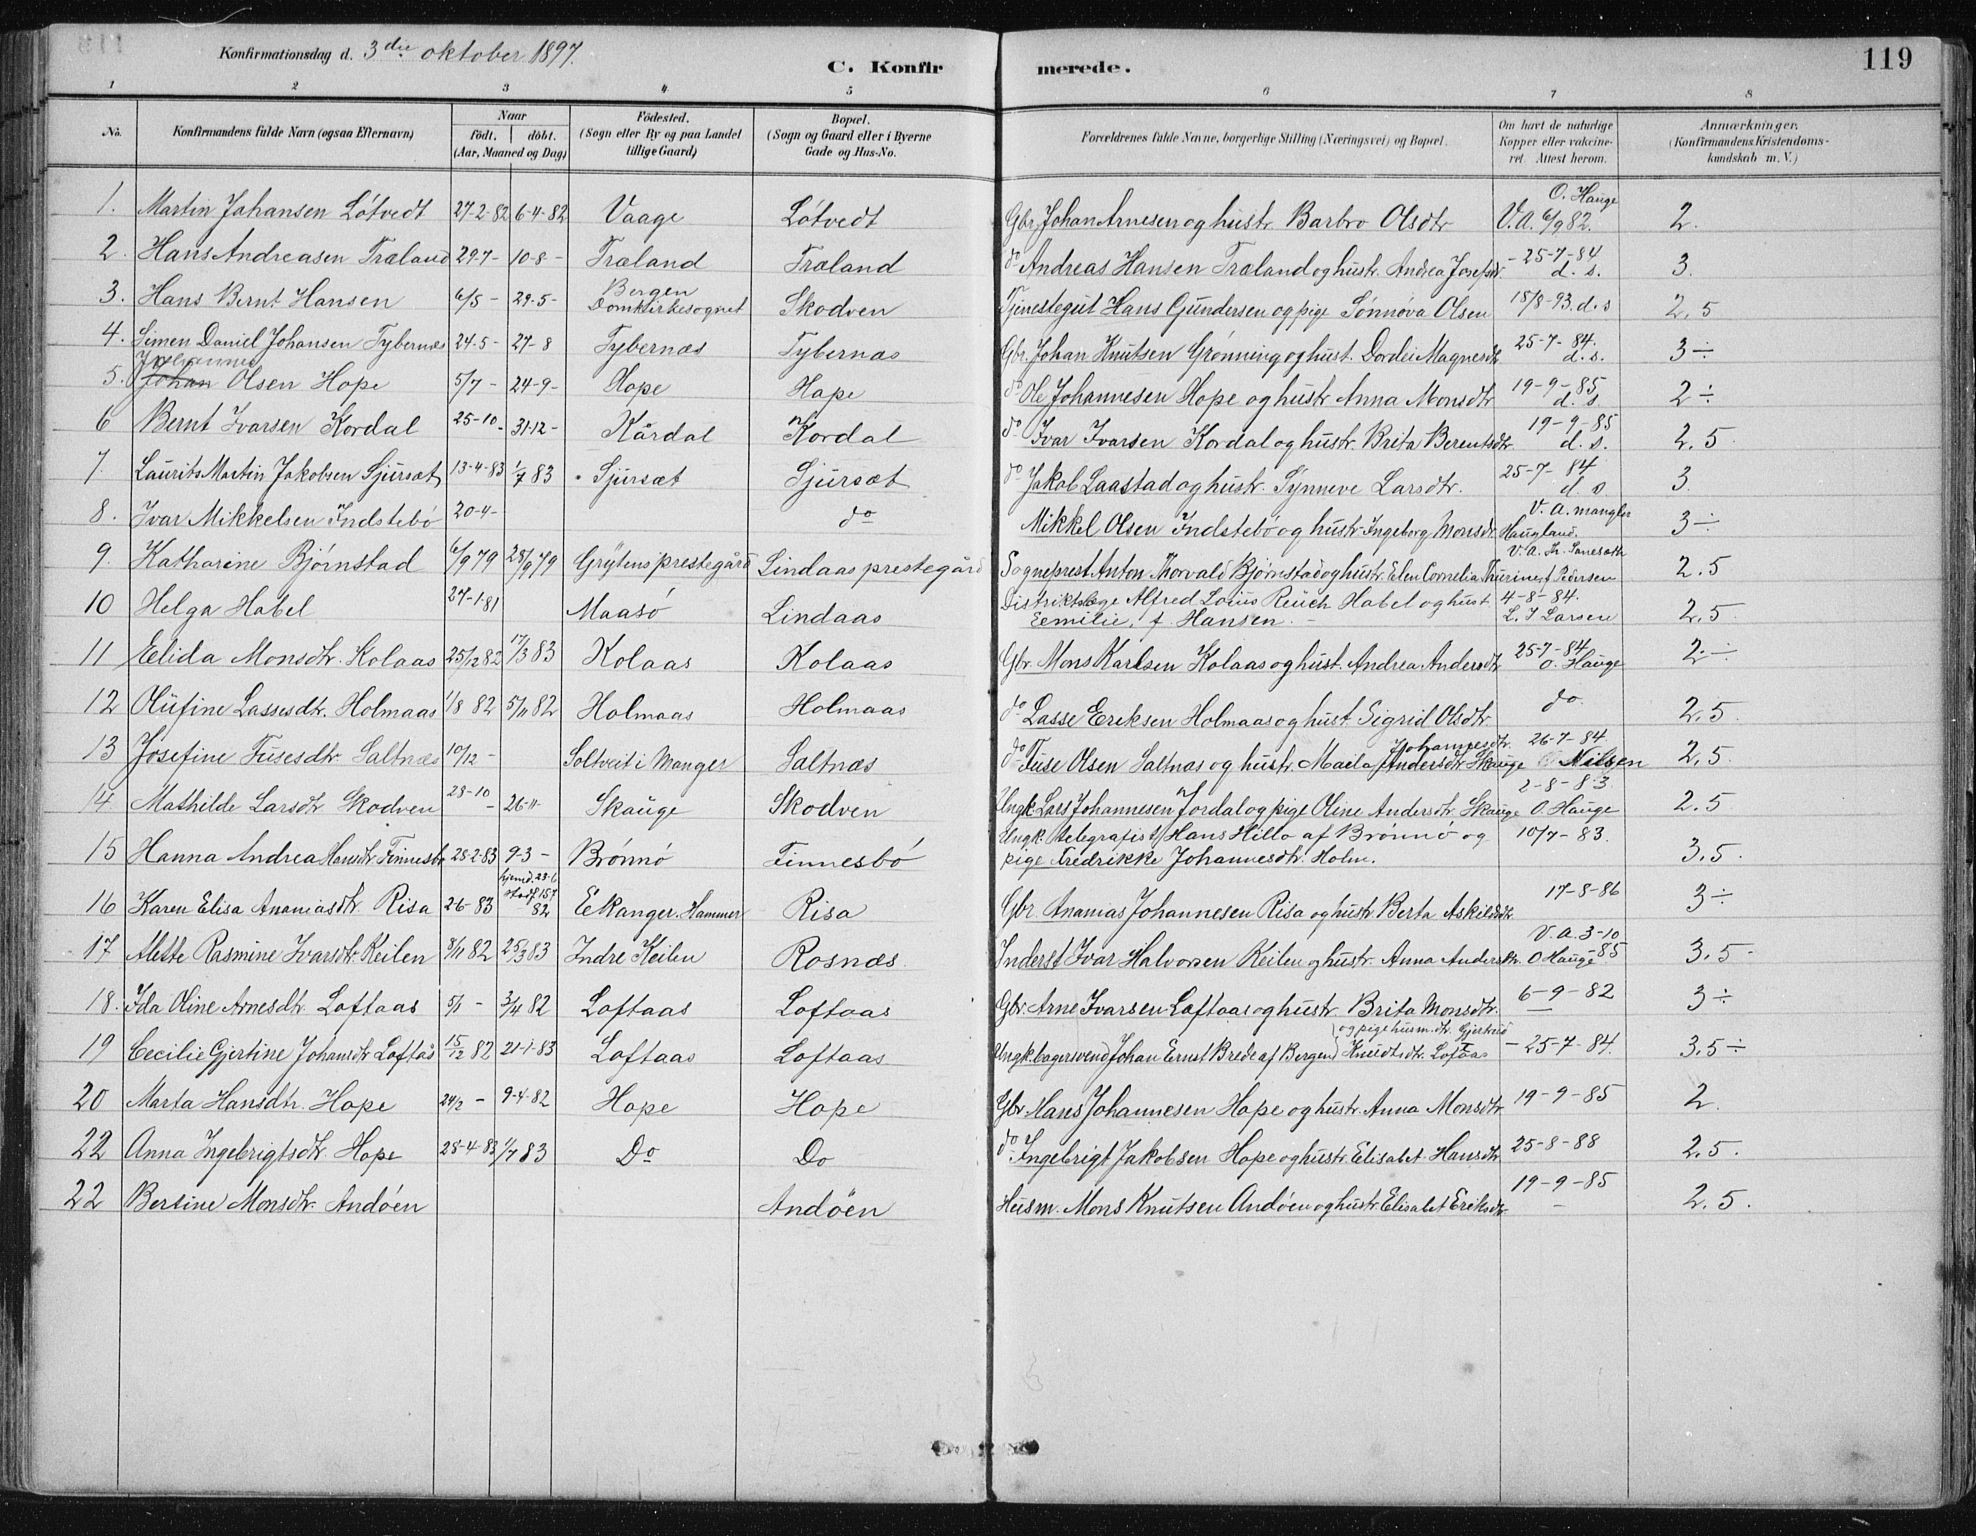 Konfirmationsdag d. 3die oktober 1897.
C. Konfirmerede.
119
1 2 3 4 5 6 7 8
No. Konfirmandens fulde Navn (ogsaa Efternavn) Naar født. døbt. (Aar, Maaned og Dag) Fødested. (Sogn eller By og paa Landet tillige Gaard) Bopæl. (Sogn og Gaard eller i Byerne Gade og Hus-No. Forældrenes fulde Navne, borgerlige Stilling (Næringsvei) og Bopæl. Om havt de naturlige Kopper eller vakcineret. Attest herom. Anmærkninger. (Konfirmandens Kristendomskundskab m. V.)
1. Martin Johansen Løtvedt 27-2-82 6-4-82 Vaage Løtvedt Gbr. Johan Arnesen og hustr. Barbro Olsdtr O. Hauge V.A. 6/9 82. 2.
2. Hans Andreasen Træland 29-7- 10-8- Træland Træland do Andreas Hansen Træland og hustr. Andrea Josefsdtr -25-7-84 d. s. 3.
3. Hans Bernt Hansen 6/5- 29-5- Bergen Domkirkesognet Skodven Tjenestegut Hans Gundersen og pige Sønnøva Olsen 18/8-93. d. s 2.5
4. Simen Daniel Johansen Tybernæs 24-5- 27-8 Tybernæs Tybernæs Gbr. Johan Knutsen Grønning og hust. Dordei Magnesdtr 25-7-84. d. s. 3÷
5. Johannes Johan Olsen Hope 5/7- 24-9- Hope Hope do Ole Johannesen Hope og hustr Anna Monsdtr 19-9-85 d. s 2÷
6 Bernt Ivarsen Kordal 25-10- 31-12- Kårdal Kordal do Ivar Ivarsen Kordal og hustr. Brita Berentsdtr. 19-9-85 d. s. 2.5
7. Laurits Martin Jakobsen Sjursæt 13-4-83 1/7 83 Sjursæt Sjursæt do Jakob Laastad og hustr. Synneve Larsdtr. 25-7-84 d s 3.
8. Ivar Mikkelsen Indstebø 20-4- do Mikkel Olsen Indstebø og hustr. Ingeborg Monsdtr Haugland. V. A. mangler 3÷
9. Katharine Bjørnstad 6/9 79 28/9 79 Grytens prestegård Lindaas prestegård Sogneprest Anton Thorvald Bjørnstad og hustr. Elen Cornelia Thurine f. Pedersen V. A. 2.5
10 Helga Habel 27-1-81 Maasø Lindaas Distriktslæge Alfred Loius Reuch Habel og hust Eemilie, f. Hansen. 4-8-84. L. J Larsen 2.5
11 Eelida Monsdtr. Kolaas 25/12 82 17/3 83 Kolaas Kolaas Gbr Mons Karlsen Kolaas og hust. Andrea Andersdtr 25-7-84 O. Hauge 2÷
12 Olufine Lassesdtr. Holmaas 1/8 82 5/11 82 Holmaas Holmaas do Lasse Eriksen Holmaas og hust. Sigrid Olsdtr do 2.5
13 Josefine Fusesdtr Saltnæs 10/12- Soltveit i Manger Saltnæs do Fuse Olsen Saltnæs og hustr. Maela Johannesdtr. Andersdtr Skauge 26-7-84 Nilsen 2.5
14 Mathilde Larsdtr Skodven 28-10- 26-11- Skauge Skodven Ungk. Lars Johannesen Jordal og pige Oline Andersdtr. Skauge 2-8-83 O. Hauge 2.5
15 Hanna Andrea Hansdtr Finnesbø 28-2-83 9-3- Brønnø Finnesbø Ungk. telegrafist Hans Hillo af Brønnø og pige Fredrikke Johannesdtr. Holm. 10/7-83. 3.5.
16 Karen Elisa Ananiasdtr. Risa 2-6-83 hjemd. 23-6 stadf. 15/7 82 Eekanger. Hammer Risa Gbr. Ananias Johannesen Risa og hustr. Berta Askilsdtr. 17-8-86 3÷
17 Alette Rasmine Ivarsdtr. Keilen 8/11 82 25/3 83 Indre Keilen Rosnæs Inderst Ivar Halvorsen Keilen og hustr. Anna Andersdtr. V. A. 3-10-85 O Hauge 3.5-
18. Ida Oline Arnesdtr. Loftaas 5/1- 3/4 82 Loftaas Loftaas Gbr. Arne Ivarsen Loftaas og hustr. Brita Monsdtr. 6-9-82 3÷
19 Cecilie Gjertine Johansdtr Loftås 15/12 82 21-1-83 Loftaas Loftaas Ungk. bagersvend Johan Ernst Brede af Bergen og pige husm. dtr. Gjertrud Knudtsdtr. Loftaas -25-7-84. 3.5÷
20 Marta Hansdtr. Hope 24/2- 9-4-82 Hope Hope Gbr. Hans Johannesen Hope og hustr. Anna Monsdtr. 19-9-85 2.
22 Anna Ingebrigtsdtr. Hope 28-4-83 1/7 83 Do Do do Ingebrigt Jakobsen Hope og hustr. Elisabet Hansdtr 25-8-88 2.5.
22 Bertine Monsdtr. Andøen Andöen Husm. Mons Knutsen Andøen og hustr. Elisabet Eriksdtr. 19-9-85 - 2.5.